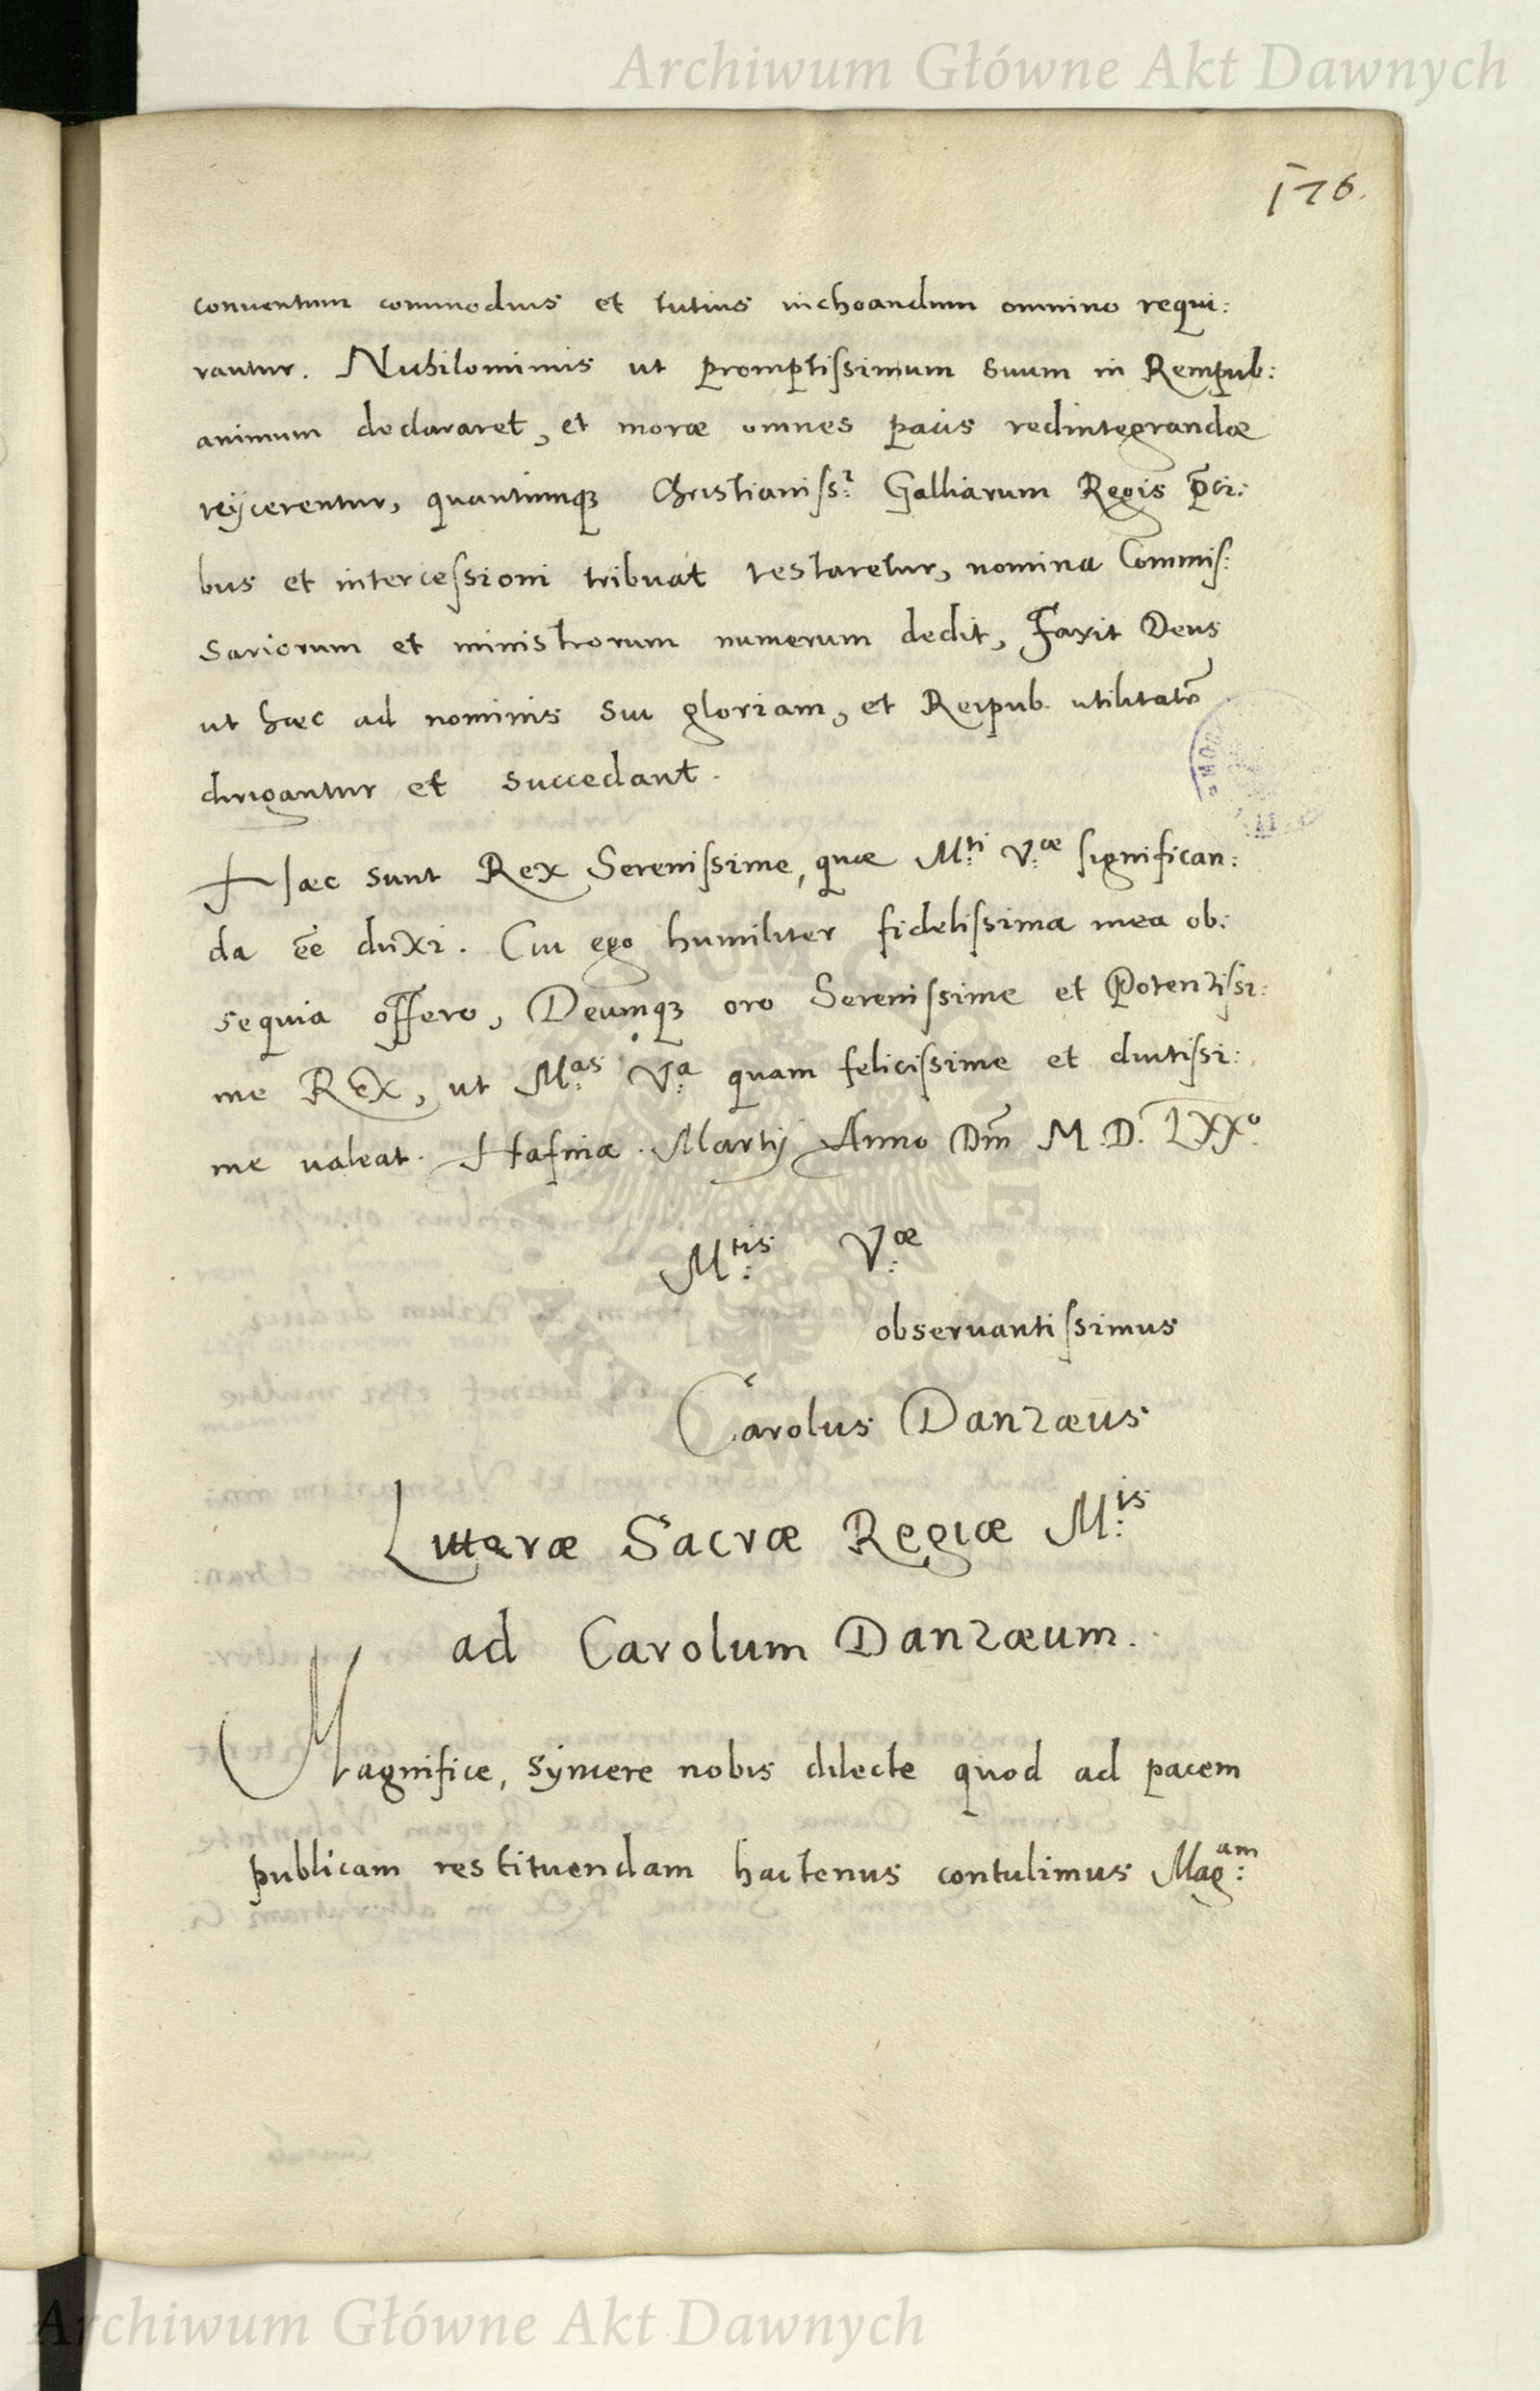 Archiwum Główne Akt Dawnych
176.
conuentum commodius et tutius inchoandum omnino requi:
rantur. Nihilominus ut promptiſsimum suum in Rempub:
animum declararet, et moræ omnes pacis redintegrandæ
reijcerentur, quantumq́ꝫ Christianiſs: Galliarum Regis p̄ci:
bus et interceſsioni tribuat testaretur, nomina Commiſ:
sariorum et ministrorum numerum dedit, Faxit Deus
ut hæc ad nominis sui gloriam, et Reipub. utilitatē
dirigantur et succedant.
Hæc sunt Rex Sereniſsime, quæ M:ti V:æ significan:
da ēē duxi. Cui ego humiliter fideliſsima mea ob:
sequia offero, Deumqꝫ oro Sereniſsime et Potentiſsi:
me Rex, ut M:as V:a quam feliciſsime et diutiſsi:
me ualeat. Hafniæ. Martij Anno Dm̄ M.D. LXXo.
M:tis V:æ
obseruantiſsimus
Carolus Danzæus
Litteræ Sacræ Regiæ M:tis
ad Carolum Danzæum.
Magnifice, syncere nobis dilecte quod ad pacem
publicam restituendam hactenus contulimus Mag:am
Archiwum Główne Akt Dawnych